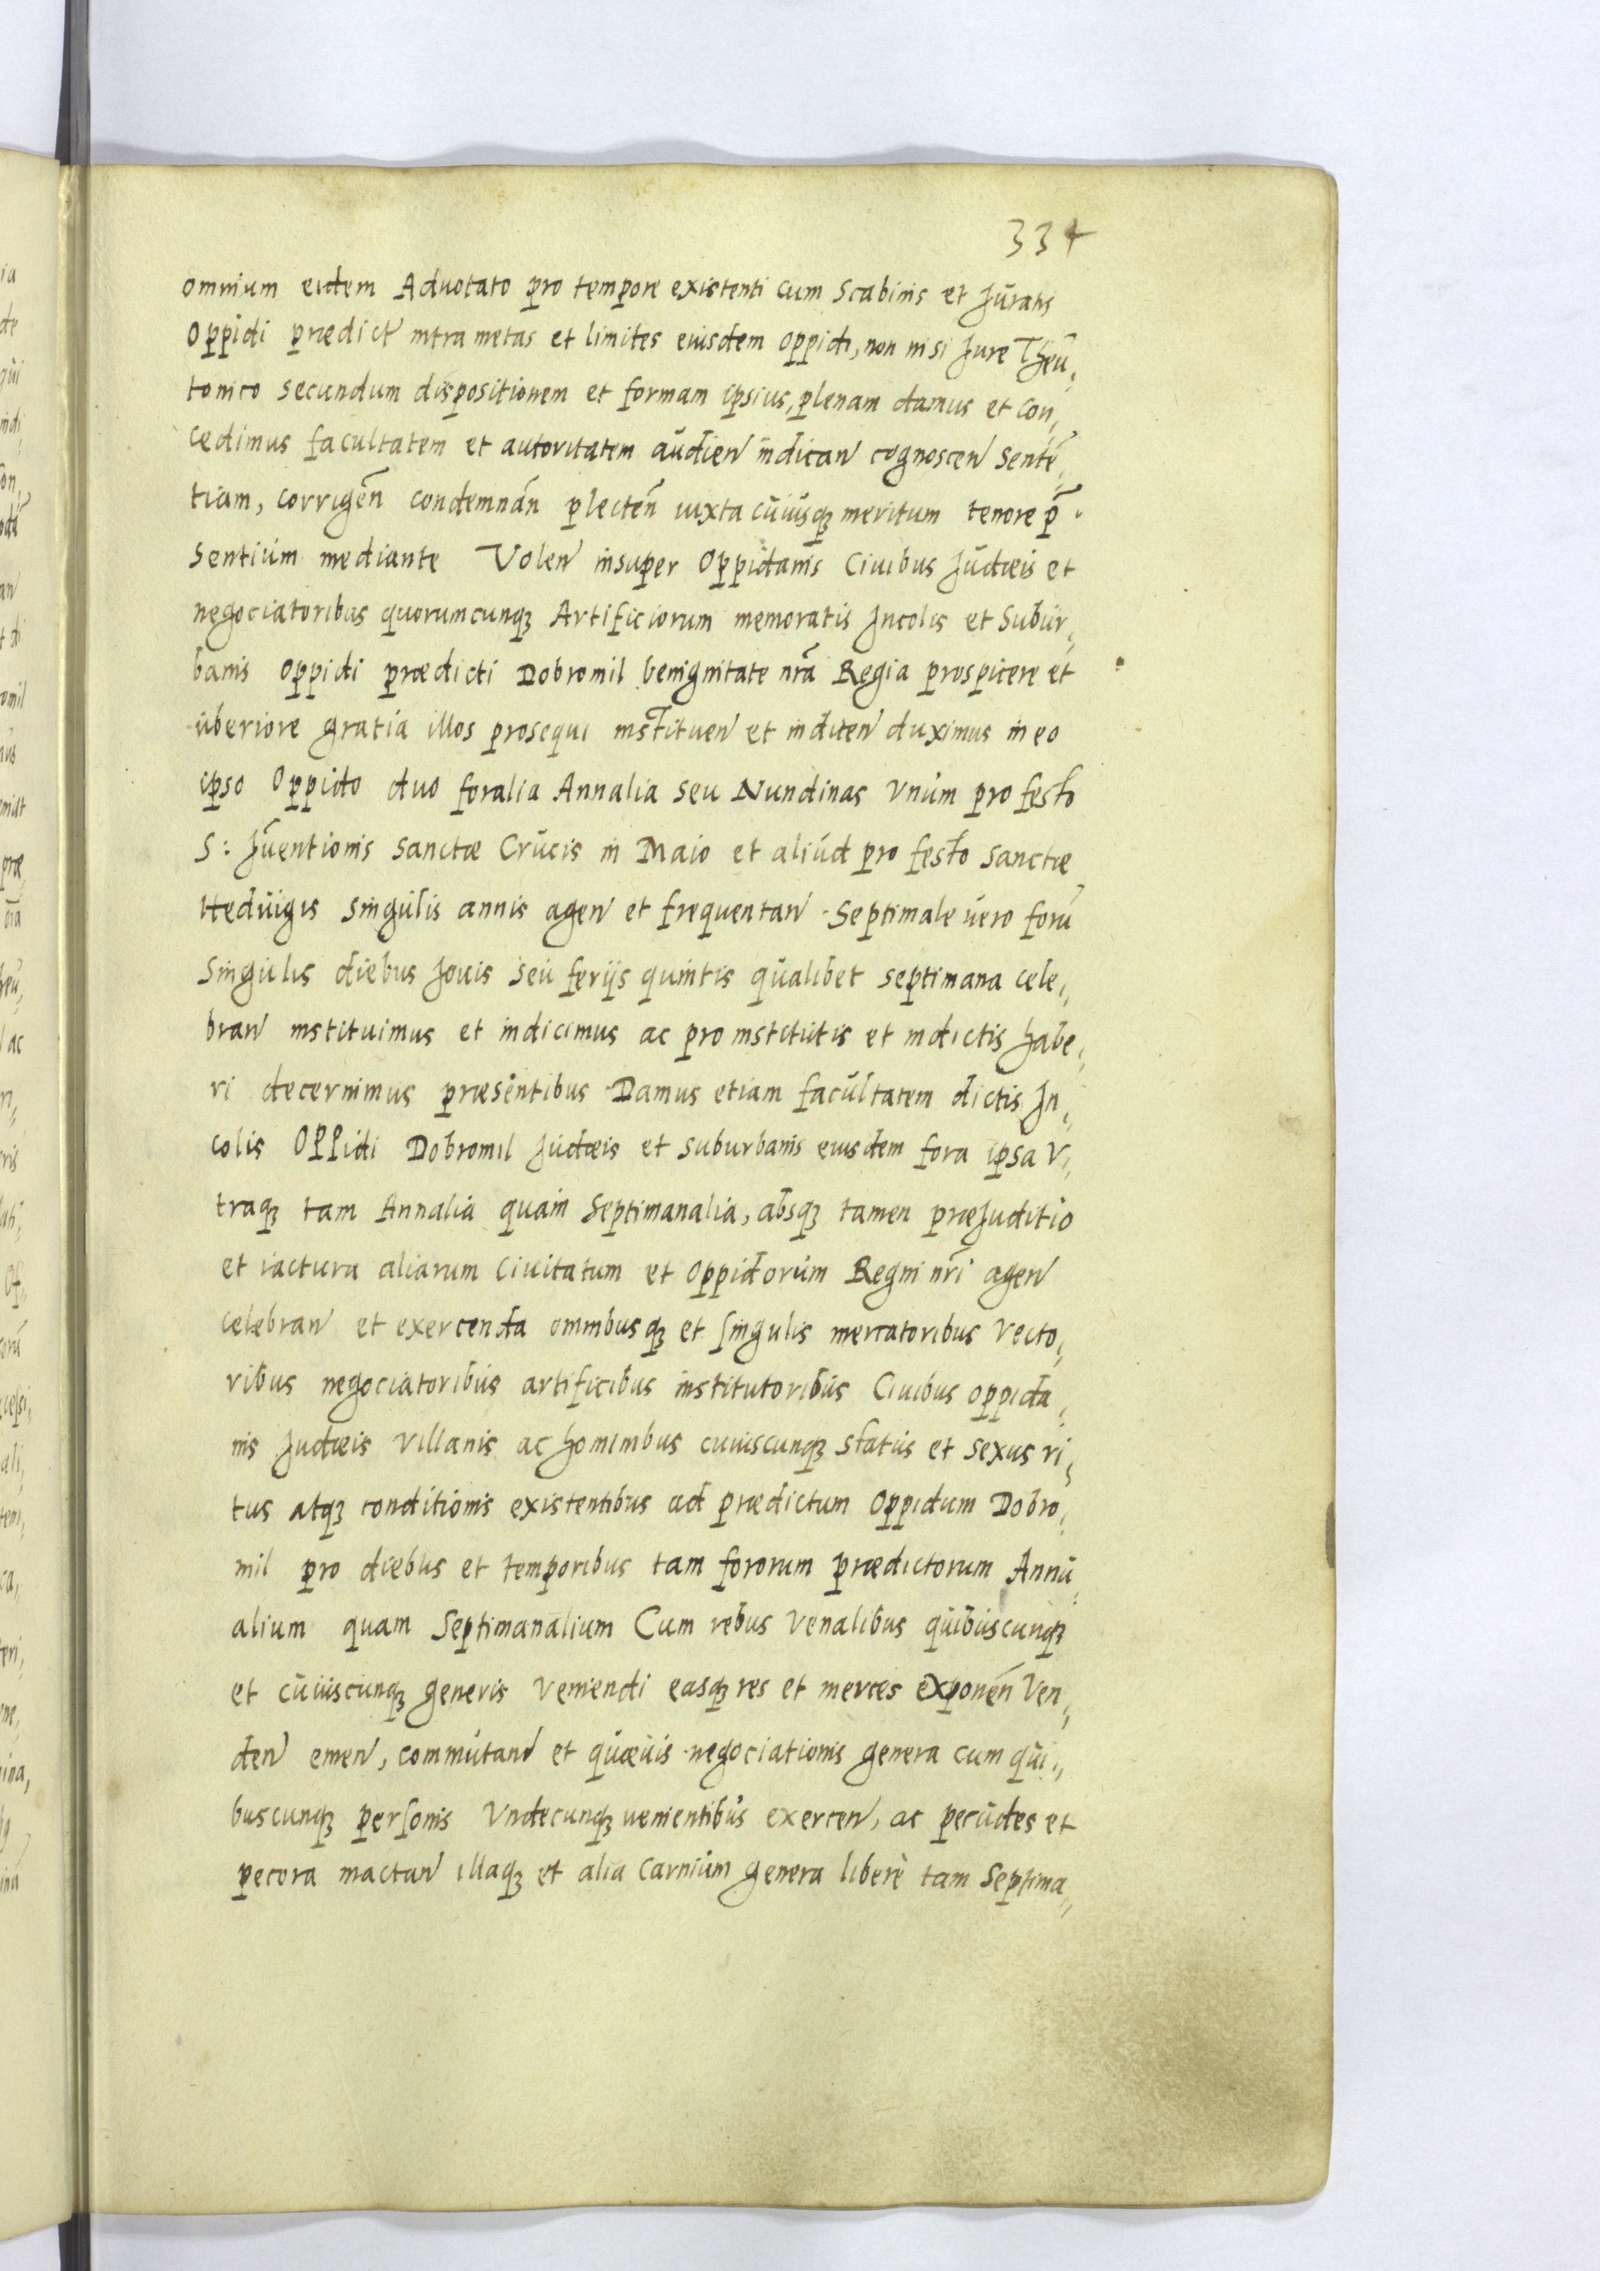 334
omnium eidem Aduocato pro tempore existenti cum Scabinis et Juratis
Oppidi prædict intra metas et limites eiusdem oppidi, non nisi Jure Theu„
tonico secundum dispositionem et formam ipsius, plenam damus et con„
cedimus facultatem et autoritatem audien indican cognoscen senten„
tiam, corrigen condemnan plecten iuxta cuiusq meritum tenore p
sentium mediante Volen insuper Oppidanis Ciuibus Judæis et
negociatoribus quorumcunq Artificiorum memoratis Incolis et Subur„
banis oppidi prædicti Dobromil benignitate nra Regia prospicere et
uberiore gratia illos prosequi instituen et indicen duximus in eo
ipso Oppido duo foralia Annalia seu Nundinas vnum pro festo
S: Inuentionis sanctæ Crucis in Maio et aliud pro festo sanctæ
Heduigis singulis annis agen et frequentan Septimale vero foru
singulis diebus Jouis seu ferijs quintis qualibet septimana cele„
bran instituimus et indicimus ac pro institutis et indictis habe„
ri decernimus præsentibus Damus etiam facultatem dictis In„
colis Oppidi Dobromil Judæis et suburbanis eiusdem fora ipsa v„
traq tam Annalia quam Septimanalia, absq tamen præJuditio
et iactura aliarum Ciuitatum et oppidorum Regni nri agen
celebran et exercenda omnibusq et singulis mercatoribus vecto„
ribus negociatoribus artificibus institutoribus Ciuibus oppida„
nis Judæis villanis ac hominibus cuiuscunq status et sexus ri„
tus atq conditionis existentibus ad prædictum Oppidum Dobro„
mil pro diebus et temporibus tam fororum prædictorum Annu„
alium quam Septimanalium Cum rebus venalibus quibuscunq
et cuiuscunq generis veniendi easq res et merces exponen ven„
den emen, commutand et quæuis negociationis genera cum qui„
buscunq personis vndecunq uenientibus exercen, ac pecudes et
pecora mactan illaq et alia carnium genera liberè tam Septima„